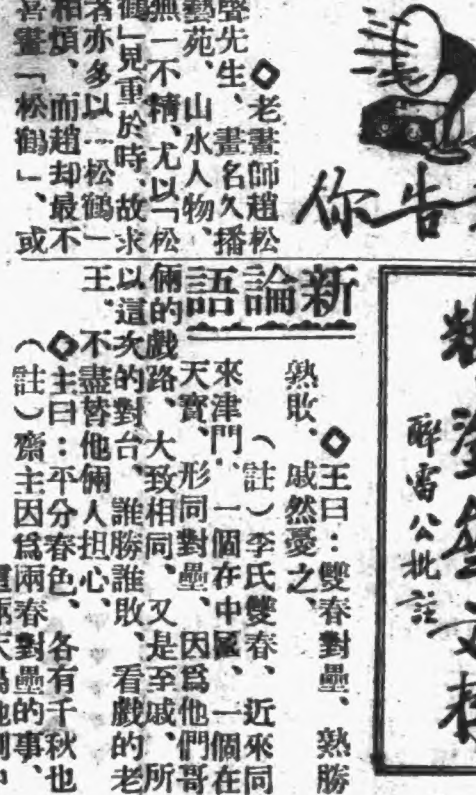 告你
◇老畫師趙松
聲先生、畫名久播
藝苑、山水人物、
無一不精、尤以「松
鶴」見重於時、故求
者亦多以「松鶴」
相煩、而趙却最不
喜畫「松鶴」、或
醉雷公批註
新論語
◇王曰：雙春對壘、熟勝
熟敗、戚然憂之、
（註）李氏雙春、近來同
來津門、一個在中國、一個在
天寶、形同對壘、因爲他們哥
倆的戲路、大致相同、又是至戚、所
以這次的對台、誰勝誰敗、看戲的老
王、不盡替他倆人担心、
◇主曰：平分春色、各有千秋也
（註）齋主因爲兩春對壘的事、